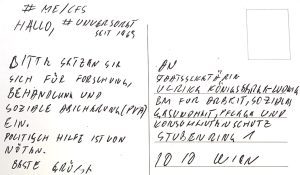 # ME/CFS
HALLO, # UNVERSORGT
SEIT 1969
BITTE SETZEN SIE
SICH FÜR FORSCHUNG,
BEHANDLUNG UND
SOZIALE ABSICHERUNG (PVA)
EIN.
POLITISCH HILFE IST VON
NÖTEN.
BESTE GRÜSSE
AN
STAATSSEKRETÄRIN
ULRIKE KÖNIGSBERGER-LUDWIG
BM FÜR ARBEIT, SOZIALES,
GESUNDHEIT, PFLEGE UND
KONSUMENTENSCHUTZ
STUBENRING 1
1010 WIEN